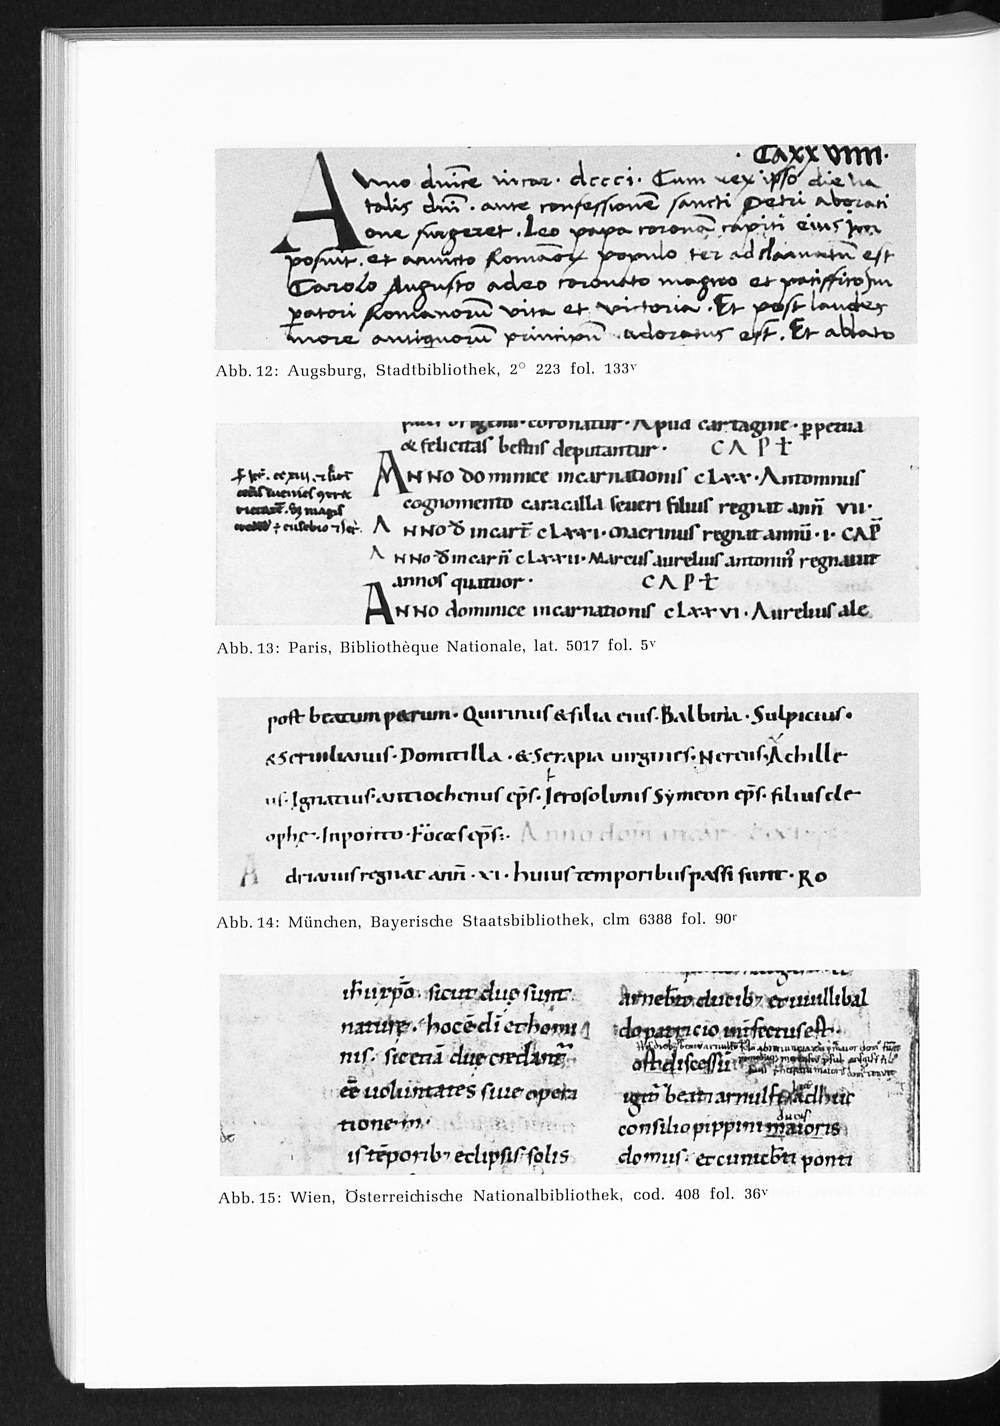 · CaxxVIIII·
Anno dnice incar · dccci · Cum rex ipso die na
talis dni · ante confessione sancti Petri ab orati
one surgeret . Leo papa corona capiti eius im
posuit . et a cuncto Romanor populo ter ad clamatu est
Carolo Augusto a deo coronato magno et patiffico Im
peratori Romanoru vita et victoria . Et post laudes
more antiquoru principu adoratus est . Et ablato
Abb. 12: Augsburg, Stadtbibliothek, 2° 223 fol. 133v
coronatur · Apud cartagine · ꝑpetua
& felicitas bestiis deputantur · CAPt
ANNO dominice incarnationis cLxx · Antoninus
cognomento caracalla seueri filius regnat ann̄ VII·
ANNO d̄ incarn̄ cLxxI · Macrinus regnat annū · I · CAP̄
ANNO d̄ incarn̄ cLxxII · Marcus aurelius antonin᾽ regnauit
annos quatuor · CAPt
ANNO dominice incarnationis cLxxVI · Aurelius ale
Abb. 13: Paris, Bibliothèque Nationale, lat. 5017 fol. 5v
post beatum petrum · Quirinus & filia eius · Balbina · Sulpicius ·
& Seruilianus · Domitilla · & Serapia uirgines · Nereus · Achille
us · Ignatius · antiochenus ep̄s · Ierosolimis Symeon ep̄s · filius cle
ophe · In ponto · Focas ep̄s ·
Adrianus regnat ann̄ · XI · huius temporibus passi sunt · Ro
Abb. 14: München, Bayerische Staatsbibliothek, clm 6388 fol. 90r
ih̄u xp̄o · sicut duę sunt
naturę · hoc ē di et homi
nis · sic etiā duę credant̄
ēē uoluntates siue opera
tione in ·
is tēporib; eclipsis solis
arneb̄to ducib; et uuillibal
do patricio interfectus est ·
ost discessū
igit̄ beati arnulfi adhuc
ducis
consilio pippini maioris
domus · et cunicb̄ti ponti
Abb. 15: Wien, Österreichische Nationalbibliothek, cod. 408 fol. 36v